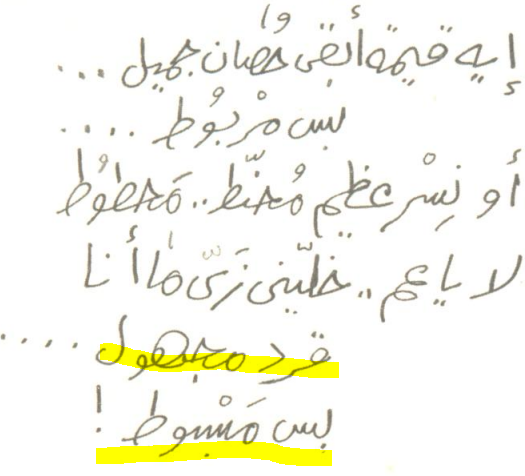 إيه قيمة أبقى حُصان جميل ...
بس مرْبوُط .....
أو نِسْر عظيم مُحنّط .. مَحطوُط
لا يا عم .. خلّيني زَىّ ما أنا
قرد مجهول ....
بس مَبْسوط !